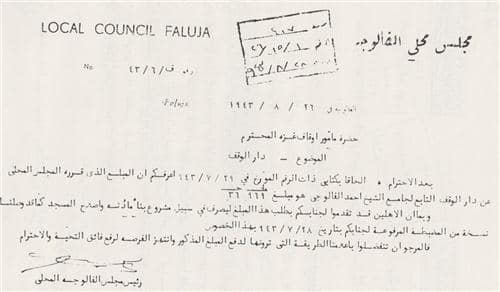 LOCAL COUNCIL FALUJA
مجلس محلي الفالوجه
No
رقم ف/٦/٤٣
Faluja
الفالوجه في ٢٦ / ٨ / ١٩٤٣
حضرة مأمور اوقاف غزه المحترم
الموضوع – دار الوقف
بعد الاحترام ٠ الحاقا بكتابي ذات الرقم المؤرخ في ٢٩ / ٧ / ٩٤٣ اعرفكم ان المبلغ الذى قرره المجلس المحلي
عن دار الوقف التابع لجامع الشيخ احمد الفالوجي هو مبلغ
وبما ان الاهلين قد تقدموا لجنابكم بطلب هذا المبلغ ليصرف في سبيل مشروع بناء مأذنته واصلاح المسجد كما قد وصلتنا
نسخة من المضبطة المرفوعة لجنابكم بتاريخ ٢٨ / ٧ / ٩٤٣ بهذا الخصوص
فالمرجو ان تتفضلوا باعلامنا الطريقة التى ترونها لدفع المبلغ المذكور وانتهز الفرصه لرفع فائق التحية والاحترام
رئيس مجلس الفالوجه المحلي